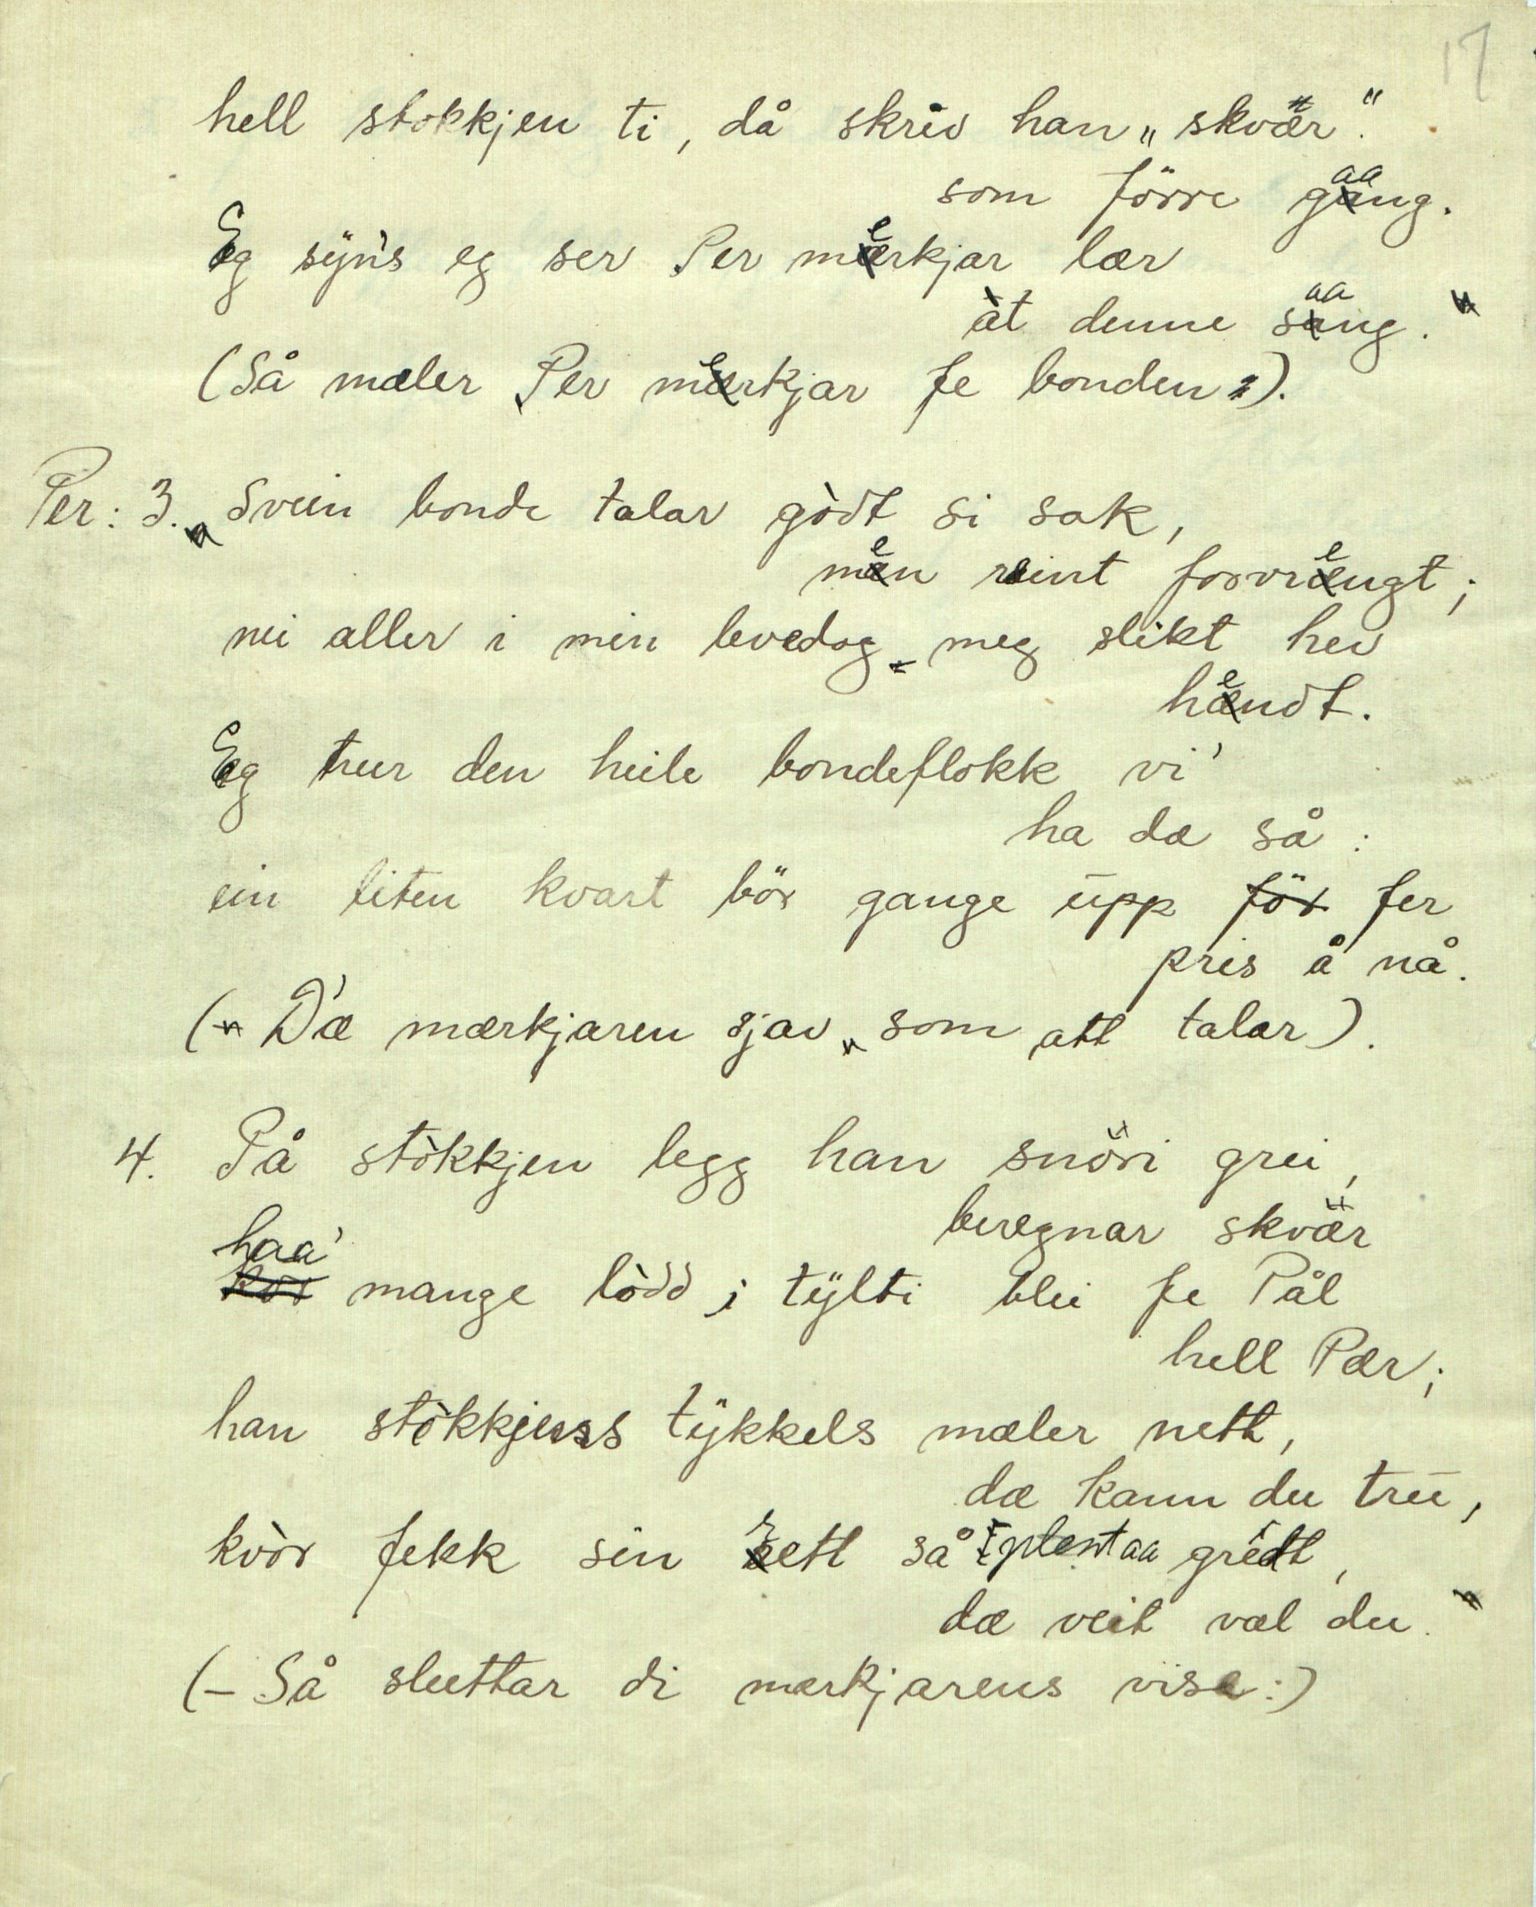 17
hell stokkjen ti, då skriv han „skvær."
som förre gaang.
Eg sÿn's eg ser Per merkjar lær
åt denne saang."
(Så mæler Per merkjar fe bonden:).
Per: 3. „Svein bonde talar gòdt si sak,
men reint forvrengt;
nei aller i min levedag meg slikt hev
hendt.
Eg trur den heile bondeflokk vi'
ha dæ så:
ein liten kvart bör gange ūpp för fer
pris å nå.
(– D'æ mærkjaren sjav, som att talar).
4. På stòkkjen legg han snöri grei,
beregnar skvær
haa'
kor mange lòdd i tÿlti blei fe Pål
hell Pær;
han stòkkjens tÿkkels mæler nett,
dæ kann du trū,
kvòr fekk sin rett så plent aa gredt,
dæ veit væl du."
(– Så sluttar di mærkjarens visa:)